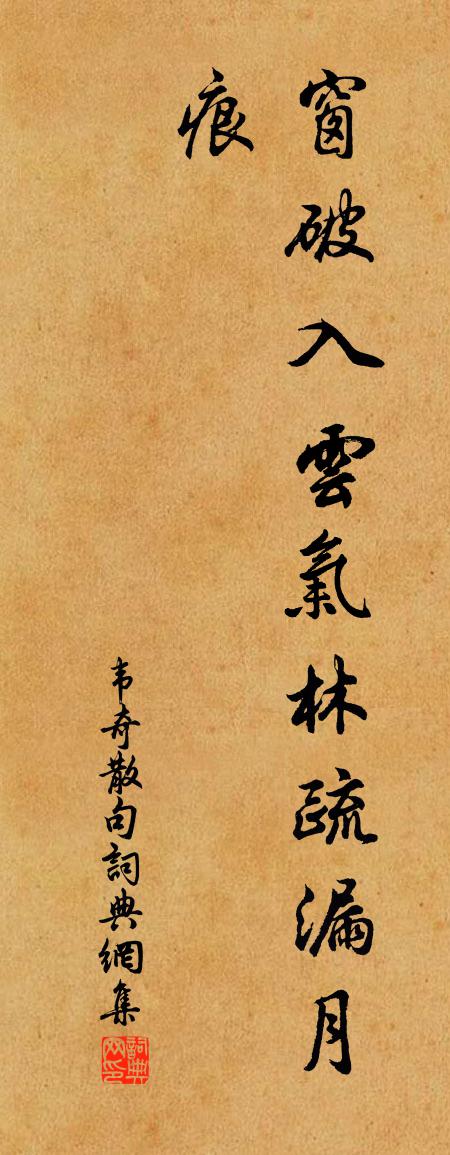 窗破入雲氣林疏漏月
痕
韦奇散句詞典網集
詞典
网印